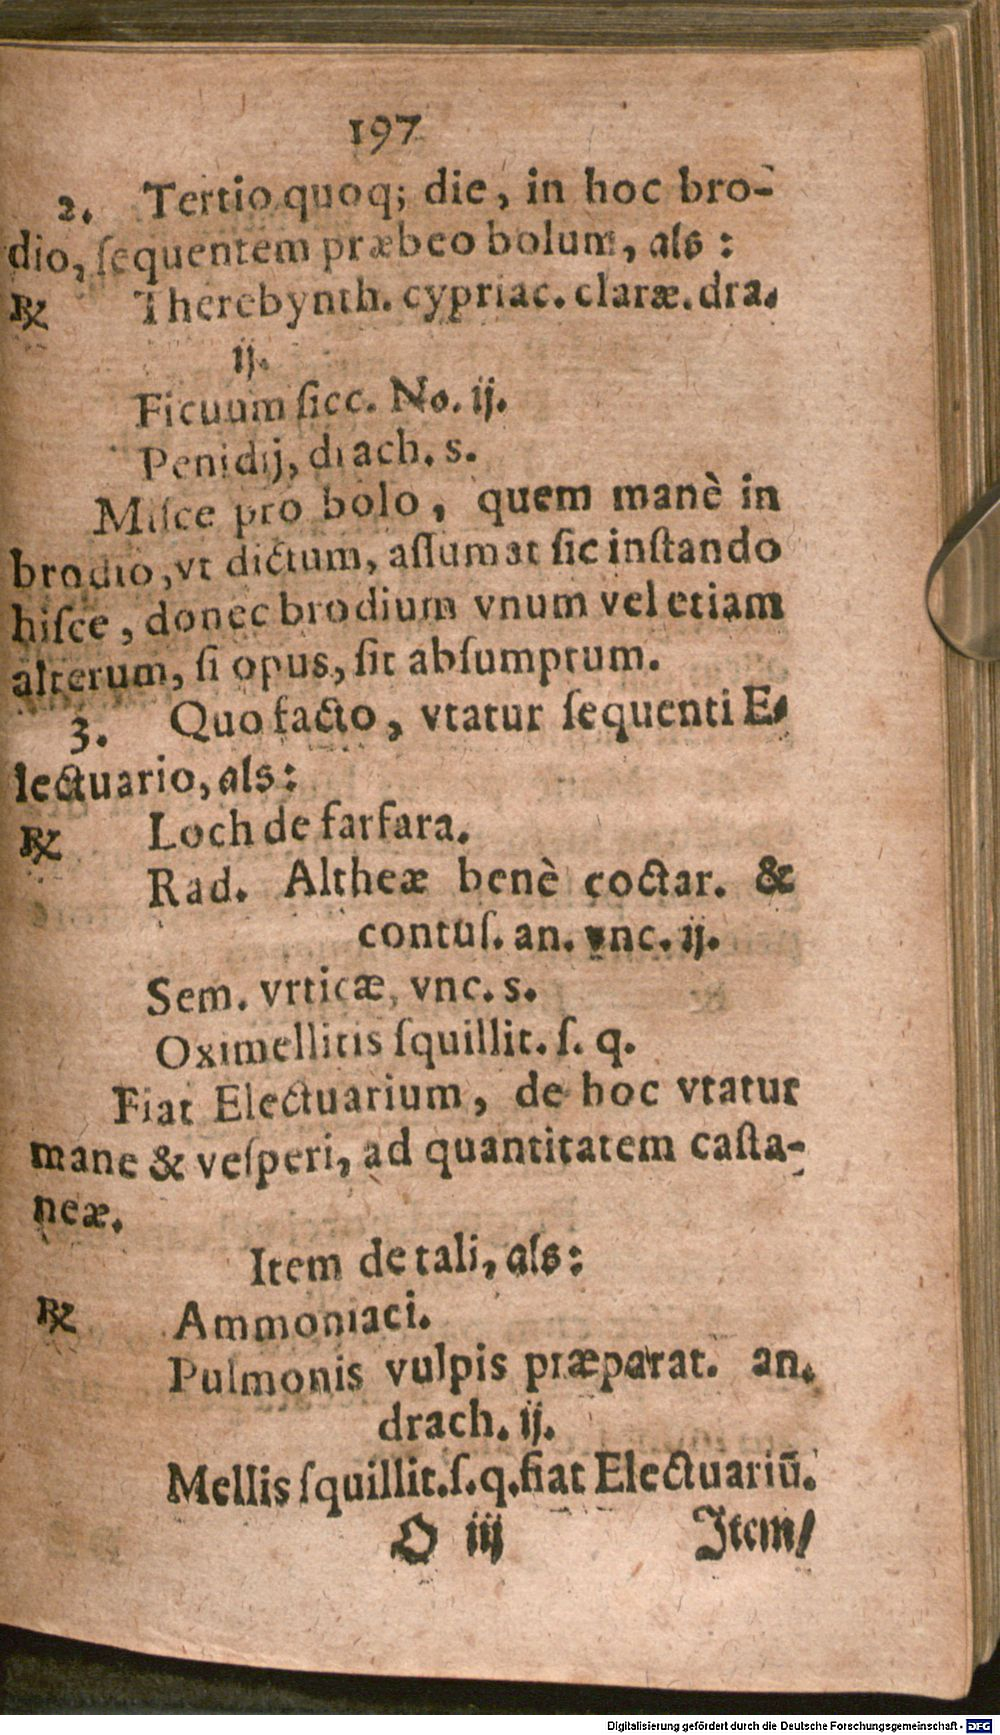 197
2. Tertio quoq; die, in hoc bro-
dio, ſequentem præbeo bolum, als:
℞ Therebynth. cypriac. claræ. dra.
ij.
Ficuum ſicc. No. ij.
Penidij, drach. s.
Miſce pro bolo, quem manè in
brodio, vt dictum, aſſumat ſic inſtando
hiſce, donec brodium vnum vel etiam
alterum, ſi opus, ſit abſumptum.
3. Quo facto, vtatur ſequenti E-
lectuario, als:
℞ Loch de farfara.
Rad. Altheæ benè coctar. &
contuſ. an. vnc. ij.
Sem. vrticæ, vnc. s.
Oximellitis ſquillit. ſ. q.
Fiat Electuarium, de hoc vtatur
mane & veſperi, ad quantitatem caſta-
neæ.
Item de tali, als:
℞ Ammoniaci.
Pulmonis vulpis præparat. an.
drach. ij.
Mellis ſquillit. ſ. q. fiat Electuariū.
O iij Item/
Digitalisierung gefördert durch die Deutsche Forschungsgemeinschaft - DFG